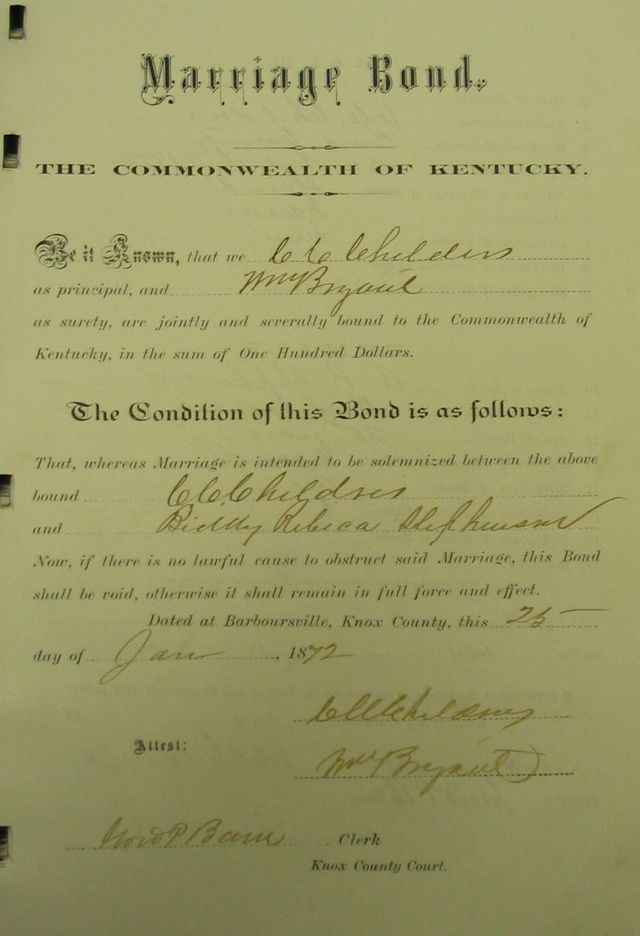 Marriage Bond.
THE COMMONWEALTH OF KENTUCKY.
Be it Known, that we C C Childers
as principal, and Wm Bryant
as surety, are jointly and severally bound to the Commonwealth of
Kentucky, in the sum of One Hundred Dollars.
The Condition of this Bond is as follows:
That, whereas Marriage is intended to be solemnized between the above
bound C C Childers
and Biddy Rebeca Stephenson
Now, if there is no lawful cause to obstruct said Marriage, this Bond
shall be void, otherwise it shall remain in full force and effect.
Dated at Barboursville, Knox County, this 25
day of Jan, 1872
C C Childers
Attest:
Wm Bryant
Clerk
Knox County Court.